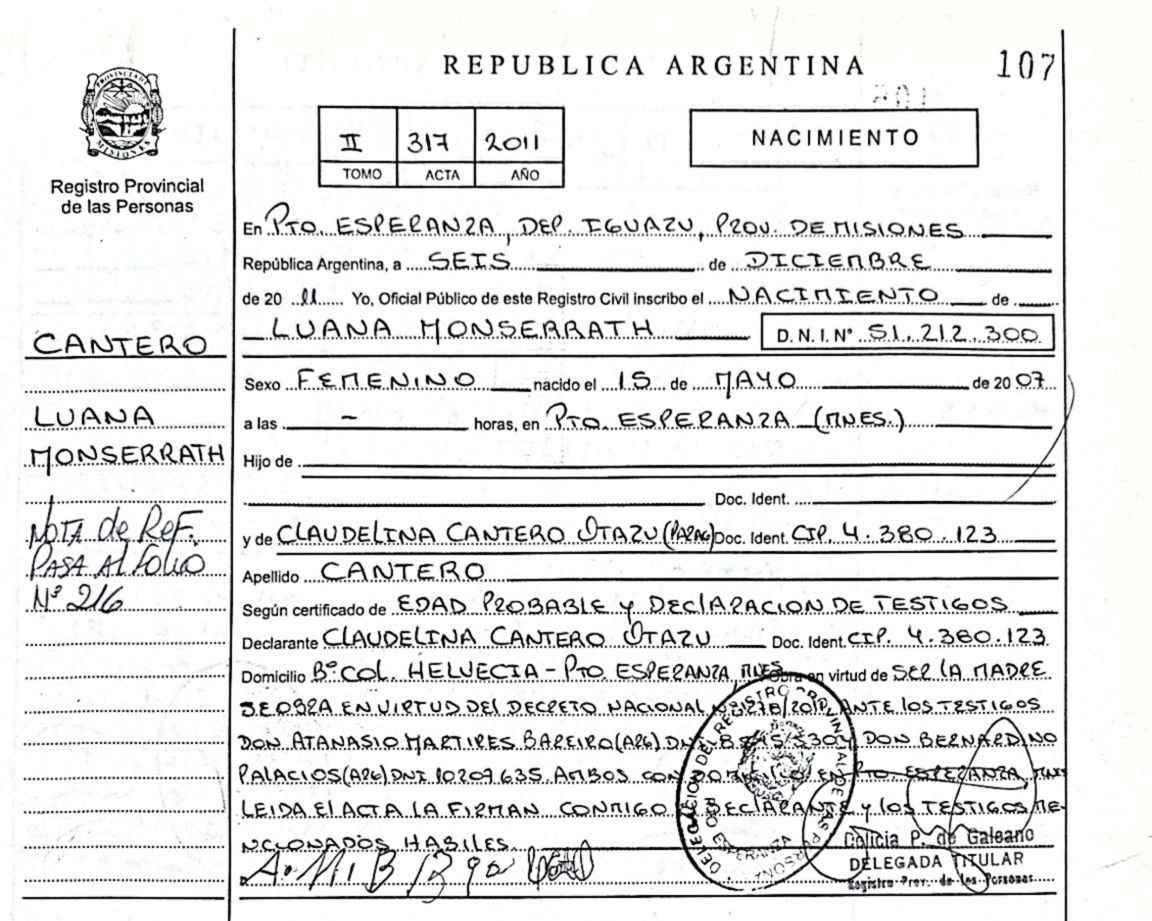 REPUBLICA ARGENTINA
107
PROVINCIA DE MISIONES
Registro Provincial
de las Personas
II 317 2011
TOMO ACTA AÑO
NACIMIENTO
En PTO. ESPERANZA, DEP. IGUAZU, PROV. DE MISIONES
República Argentina, a SEIS de DICIEMBRE
de 20 11 Yo, Oficial Público de este Registro Civil inscribo el NACIMIENTO de
LUANA MONSERRATH D.N.I.Nº 51.212.300
CANTERO
LUANA
MONSERRATH
NOTA de REF.
PASA AL FOLIO
Nº 216
Sexo FEMENINO nacido el 15 de MAYO de 20 07
a las - horas, en PTO. ESPERANZA (MNES.)
Hijo de
Doc. Ident.
y de CLAUDELINA CANTERO OTAZU (PARAG) Doc. Ident. CIP. 4.380.123
Apellido CANTERO
Según certificado de EDAD PROBABLE y DECLARACION DE TESTIGOS
Declarante CLAUDELINA CANTERO OTAZU Doc. Ident. CIP. 4.380.123
Domicilio Bº COL. HELVECIA - PTO. ESPERANZA, MNES Obra en virtud de SER LA MADRE
SE OBRA EN VIRTUD DEL DECRETO NACIONAL ANTE los TESTIGOS
DON ATANASIO MARTIRES BAREIRO (ARG) DNI DON BERNARDINO
PALACIOS (ARG) DNI 10209.635. AMBOS CON EN PTO. ESPERANZA, MNES
LEIDA El ACTA LA FIRMAN CONMIGO DECLARANTE y los TESTIGOS ME-
NCIONADOS HABILES.
DELEGACION DEL REGISTRO PROVINCIAL DE LAS PERSONAS
ESPERANZA
P. de Galeano
DELEGADA TITULAR
Registro Prov. de las Personas